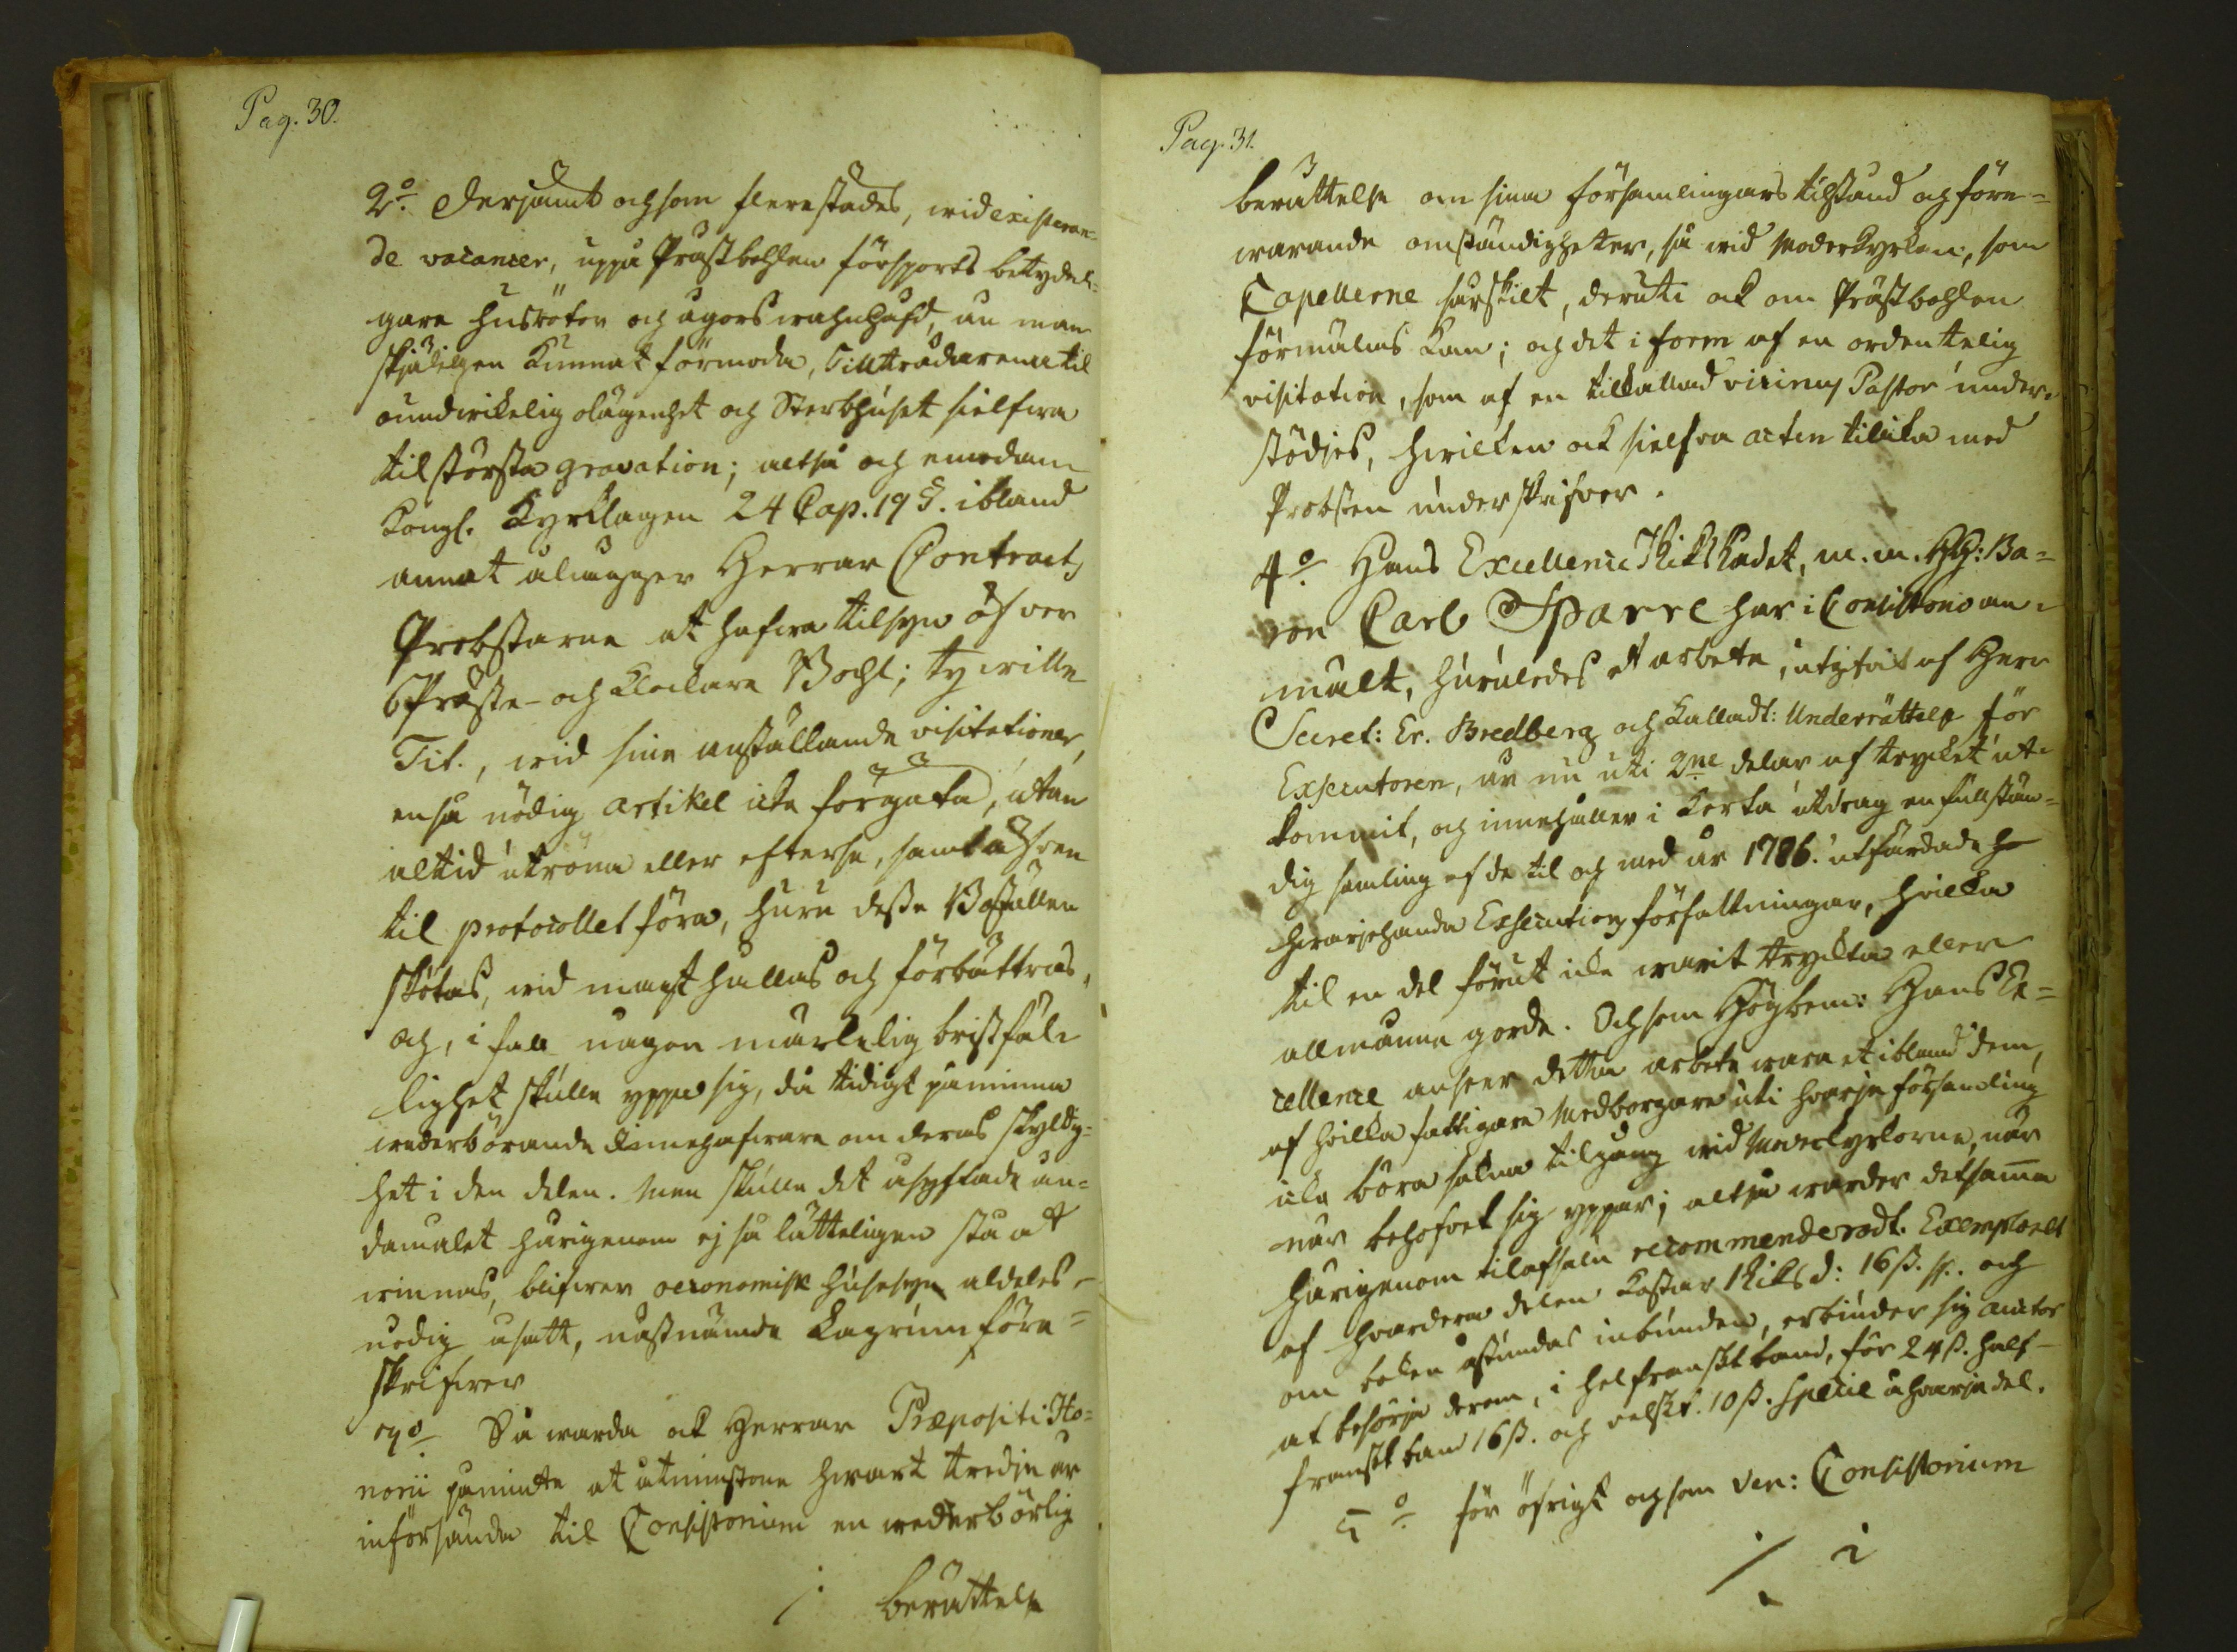 Pag. 30.
2:o Derjämte och som flerestädes, wid existeran=
de vacancer, uppå Prästbohlen försports betydeli=
gare husröter och ägors wahnhäfd, än man
skjäligen kunnat förmoda, Tillträdarena til
oundwikelig olägenhet och Sterbhuset sielfwa
til största gravation; altså och emedan
Kongl. Kyrklagen 24 Cap. 19 §. ibland
annat ålägger Herrar Contracts
Probstarne at hafwa tilsyn öfver
Präste- och Klockare Bohl; ty wille
Tit., wid sine anställande visitationer,
en så nödig artikel icke förgäta, utan
altid utröna eller efterse, samt äfven
til protocollet föra, huru desse Boställen
skötas, wid magt hållas och förbättras,
och, i fall någon märkelig bristfäl=
lighet skulle yppa sig, då tidigt påminna
wederbörande Innehafware om deras skyldig=
het i den delen. Men skulle det åsyftade än=
damålet härigenom ej så lätteligen stå at
winnas, blifwer oeconomisk husesyn aldeles
nödig, såsatt, nästnämde Lagrum före=
skrifwer
3:o Så warda ock Herrar Præpositi Ho=
norii påminte at åtminstone hwart tredje år
införsända til Consistorium en wederbörlig
/. berättelse
Pag. 31.
berättelse om sina församlingars tilstånd och före=
warande omständigheter, så wid Moderkyrkan, som
Capellerne särskilt, deruti ock om Prästbohlen
förmälas kan; och det i form af en ordentelig
visitation, som af en tilkallad vicinus Pastor under=
stödjes, hwilken ock sielfva acten tillika med
Probsten underskrifver.
4:o Hans Excellence RiksRådet, m.m. H.H: Ba=
ron Carl Sparre har i Consistorio an=
mält, huruledes et arbete, utgifvit af Herr
Secret: Er. Bredberg och kalladt: Underrättelse för
Exsecutoren, är nu uti 2:ne delar af trycket ut=
kommit, och innehåller i korta utdrag en fullstän=
dig samling af de til och med år 1786. utfärdade
hwarjehanda Exsecutions författningar, hwilka
til en del förut icke warit tryckta eller
allmänna gorde. Och som Högbem: Hans Ex=
cellence anser detta arbete wara et ibland dem,
af hwilka fattigare Medborgare uti hvarje församling
icke böra sakna tilgång wid Moderkyrkorne, när
när behofvet sig yppar; altså warder detsamma
härigenom til afsalu recommenderadt. Exemplaret
af hvardera delen kostar 1 Riksd: 16 ß. sp. och
om boken åstundas inbunden, erbiuder sig Auctor
at besörja derom, i helfranskt band, för 24 ß. half=
franskt band 16 ß. och velskt. 10 ß. Specie å hvarje del.
5:o för öfrigt och som Ven: Consistorium
/. i